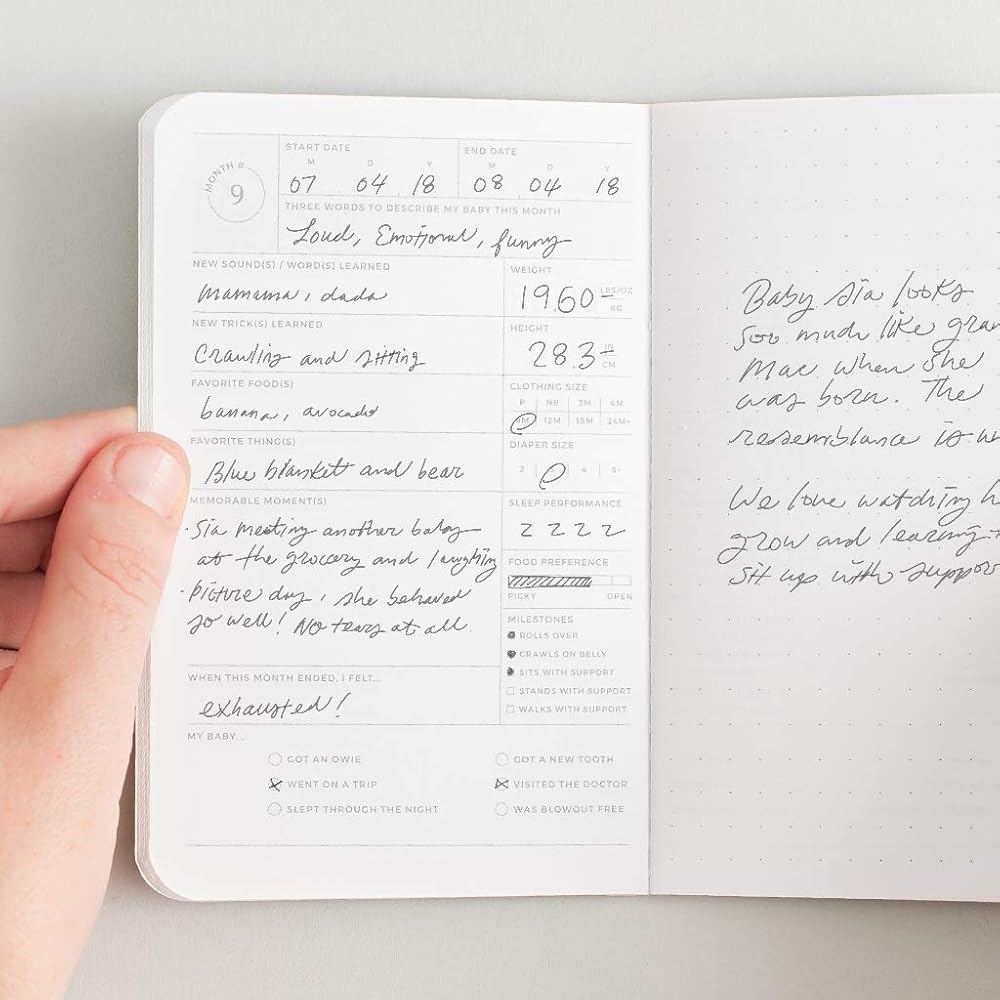 MONTH # 9
START DATE
M D Y
07 04 18
END DATE
M D Y
08 04 18
THREE WORDS TO DESCRIBE MY BABY THIS MONTH
Loud, Emotional, funny
NEW SOUND(S) / WORD(S) LEARNED
mamama, dada
WEIGHT
19.60 LBS/OZ
KG
NEW TRICK(S) LEARNED
Crawling and sitting
HEIGHT
28.3 IN
CM
FAVORITE FOOD(S)
banana, avocado
CLOTHING SIZE
P NB 3M 6M
9M 12M 18M 24M+
FAVORITE THING(S)
Blue blanket and bear
DIAPER SIZE
2 4 5+
MEMORABLE MOMENT(S)
· Sia meeting another baby
at the grocery and laughing
· Picture day, she behaved
so well! No tears at all.
SLEEP PERFORMANCE
Z Z Z Z
FOOD PREFERENCE
PICKY OPEN
MILESTONES
ROLLS OVER
CRAWLS ON BELLY
SITS WITH SUPPORT
STANDS WITH SUPPORT
WALKS WITH SUPPORT
WHEN THIS MONTH ENDED, I FELT...
exhausted!
MY BABY...
GOT AN OWIE
WENT ON A TRIP
SLEPT THROUGH THE NIGHT
GOT A NEW TOOTH
VISITED THE DOCTOR
WAS BLOWOUT FREE
Baby Sia looks
soo much like
Mac when she
was born. The
resemblance is
We love watching
grow and learning
sit up with